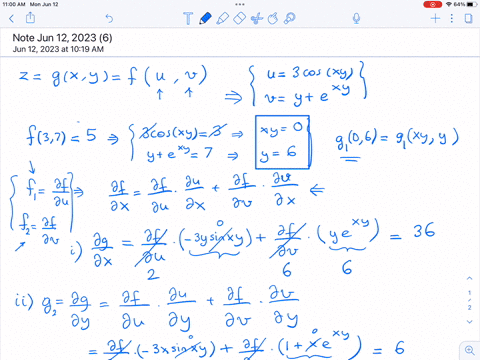 11:00 AM Mon Jun 12
64%
Note Jun 12, 2023 (6)
Jun 12, 2023 at 10:19 AM
z = g(x,y) = f(u, v) ⇒ { u = 3cos(xy)
v = y + e^{xy} }
f(3,7) = 5 ⇒ { 3cos(xy) = 3 ⇒ xy = 0
y + e^{xy} = 7 ⇒ y = 6 } g₁(0,6) = g₁(xy, y)
{ f₁ = ∂f/∂u ⇒ ∂f/∂x = ∂f/∂u · ∂u/∂x + ∂f/∂v · ∂v/∂x ⇐
f₂ = ∂f/∂v
i) ∂g/∂x = ∂f/∂u · (-3y sin xy) + ∂f/∂v · (y e^{xy}) = 36
0
2 6 6
ii) g₂ = ∂g/∂y = ∂f/∂u · ∂u/∂y + ∂f/∂v · ∂v/∂y
= ∂f/ · (-3x sin xy) + ∂f/ · (1 + x e^{xy}) = 6
0 0
1
2